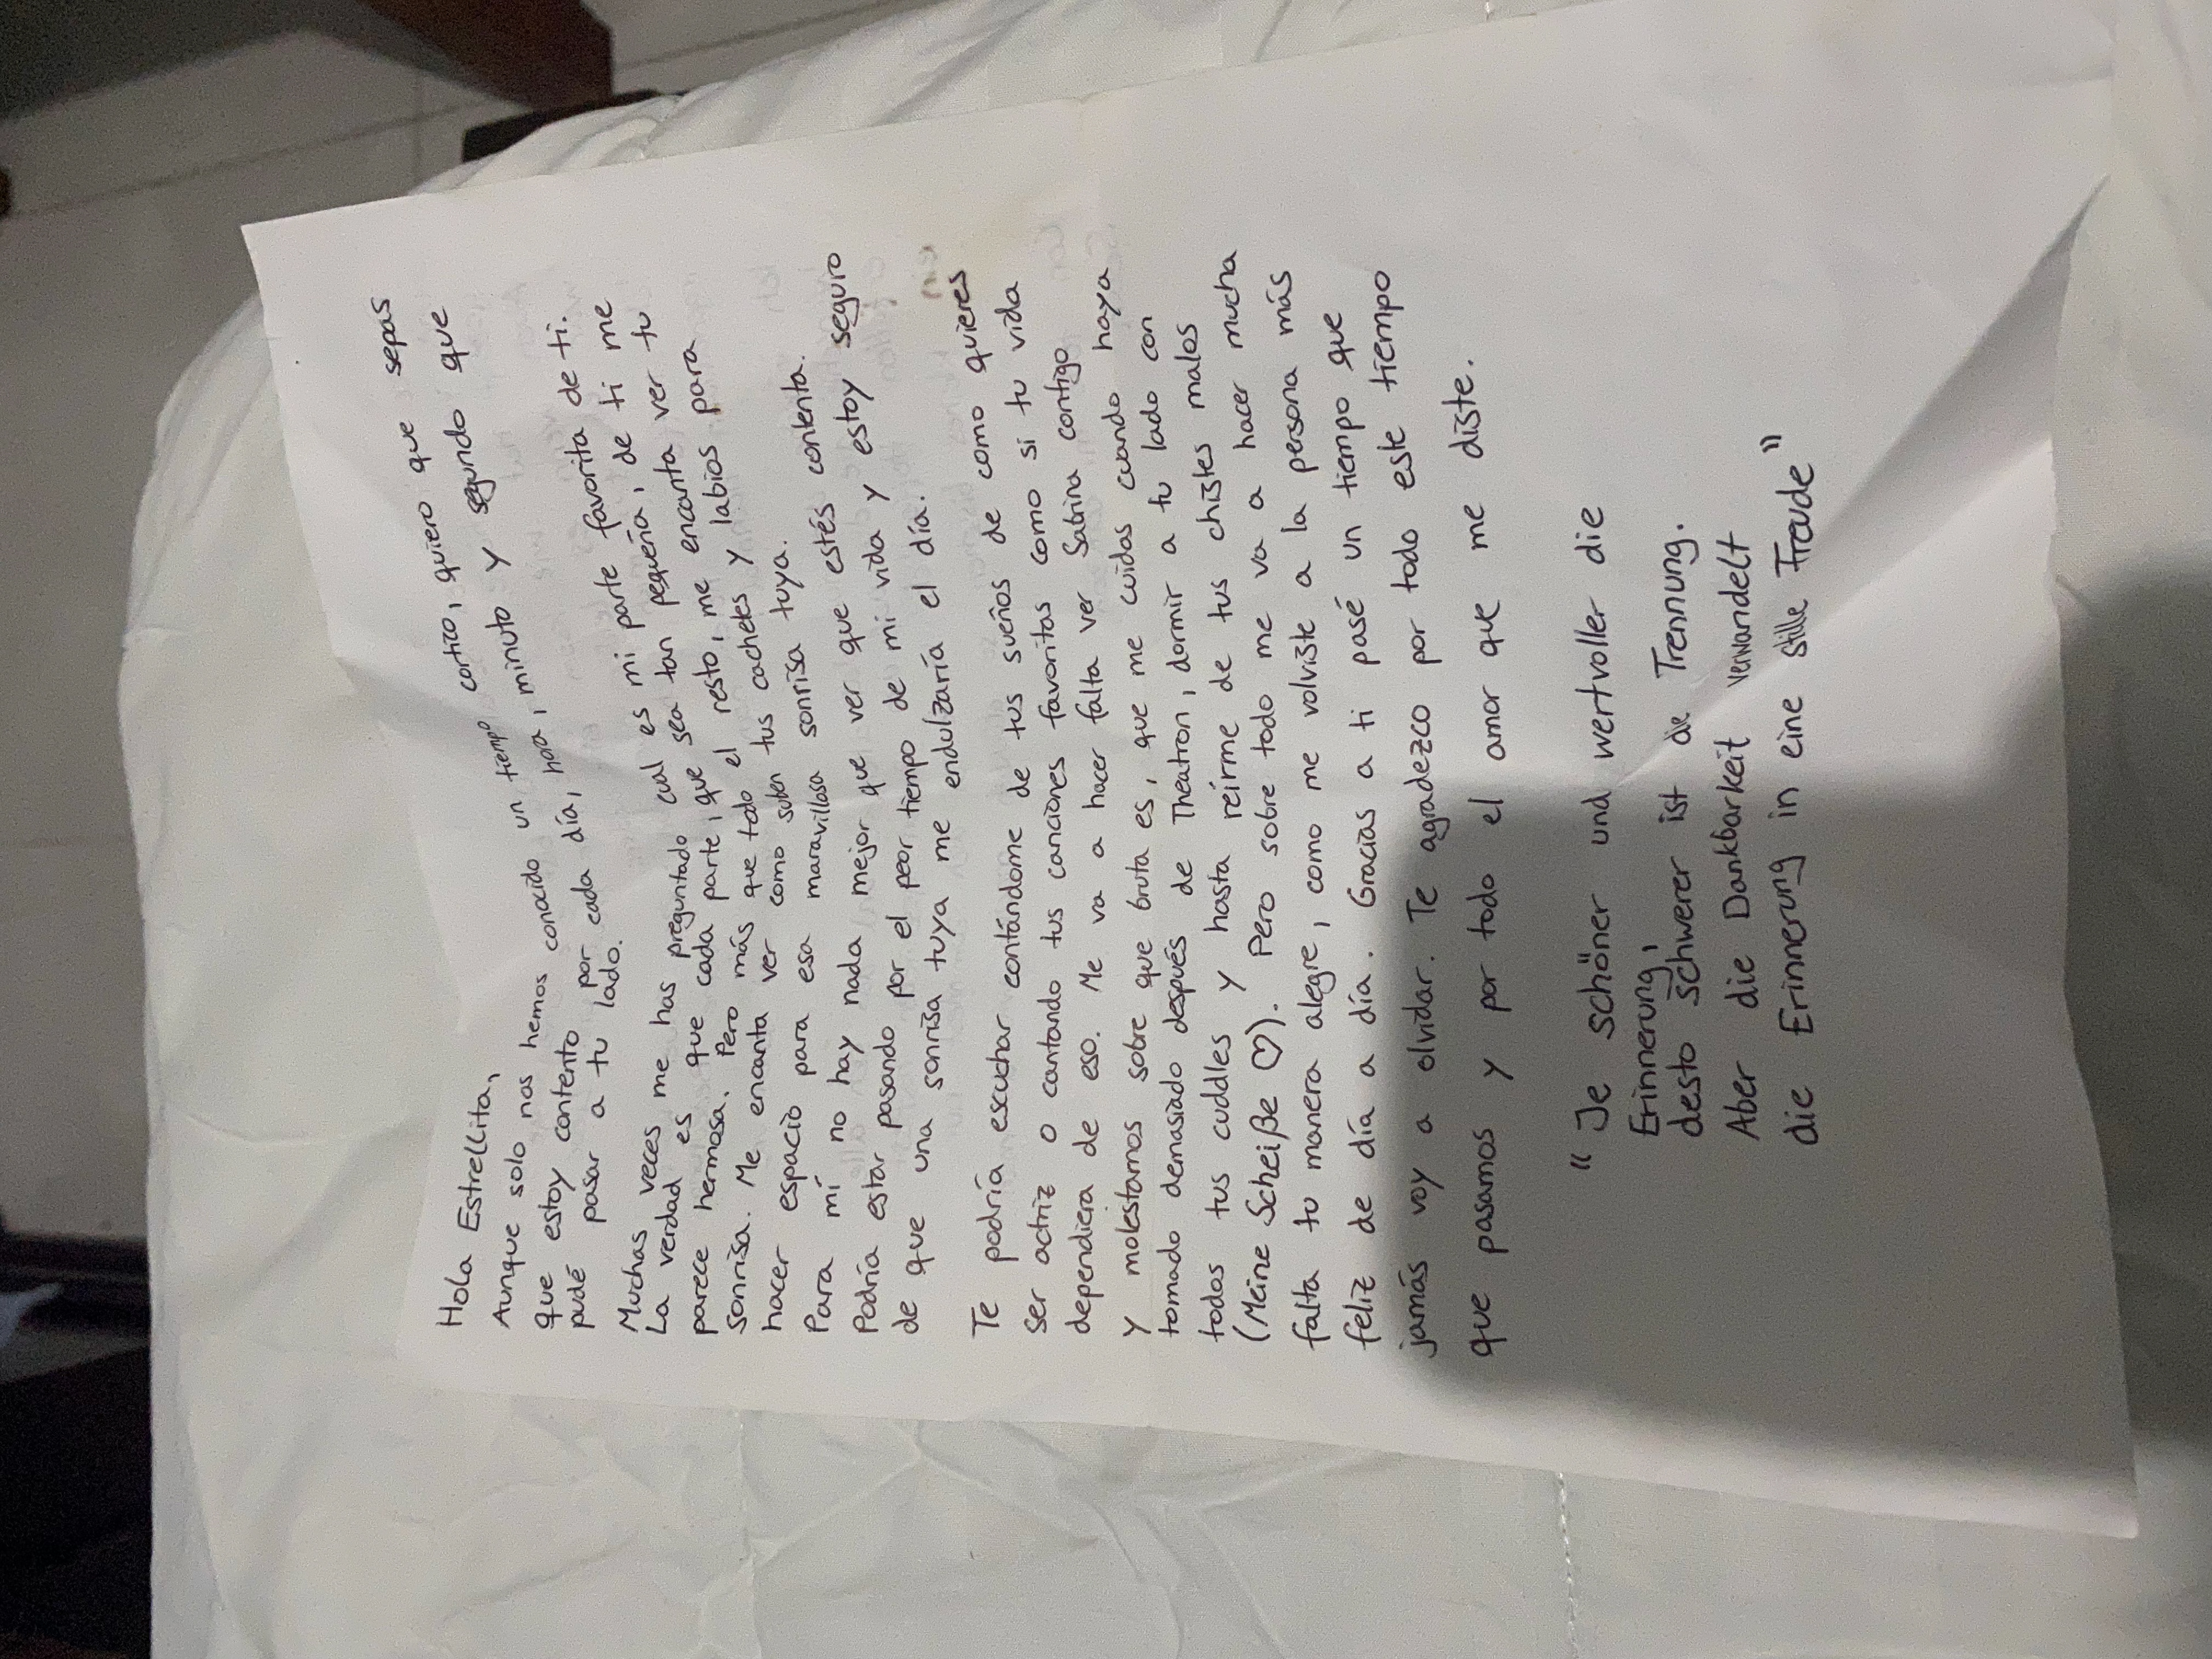 Hola Estrellita,
Aunque solo nos hemos conocido un tiempo cortico, quiero que sepas
que estoy contento por cada día, hora, minuto y segundo que
pudé pasar a tu lado.
Muchas veces me has preguntado cual es mi parte favorita de ti.
La verdad es que cada parte, que sea tan pequeña, de ti me
parece hermosa. Pero más que todo el resto, me encanta ver tu
sonrisa. Me encanta ver como suben tus cachetes y labios para
hacer espacio para esa maravillosa sonrisa tuya.
Para mí no hay nada mejor que ver que estés contenta.
Podría estar pasando por el peor tiempo de mi vida y estoy seguro
de que una sonrisa tuya me endulzaría el día.
Te podría escuchar contándome de tus sueños de como quieres
ser actriz o cantando tus canciones favoritas como si tu vida
dependiera de eso. Me va a hacer falta ver Sabrina contigo
y molestarnos sobre que bruta es, que me cuidas cuando haya
tomado demasiado después de Theatron, dormir a tu lado con
todos tus cuddles y hasta reírme de tus chistes malos
(Meine Scheiße ♡). Pero sobre todo me va a hacer mucha
falta tu manera alegre, como me volviste a la persona más
feliz de día a día. Gracias a ti pasé un tiempo que
jamás voy a olvidar. Te agradezco por todo este tiempo
que pasamos y por todo el amor que me diste.
"Je schöner und wertvoller die
Erinnerung,
desto schwerer ist die Trennung.
Aber die Dankbarkeit verwandelt
die Erinnerung in eine stille Freude"